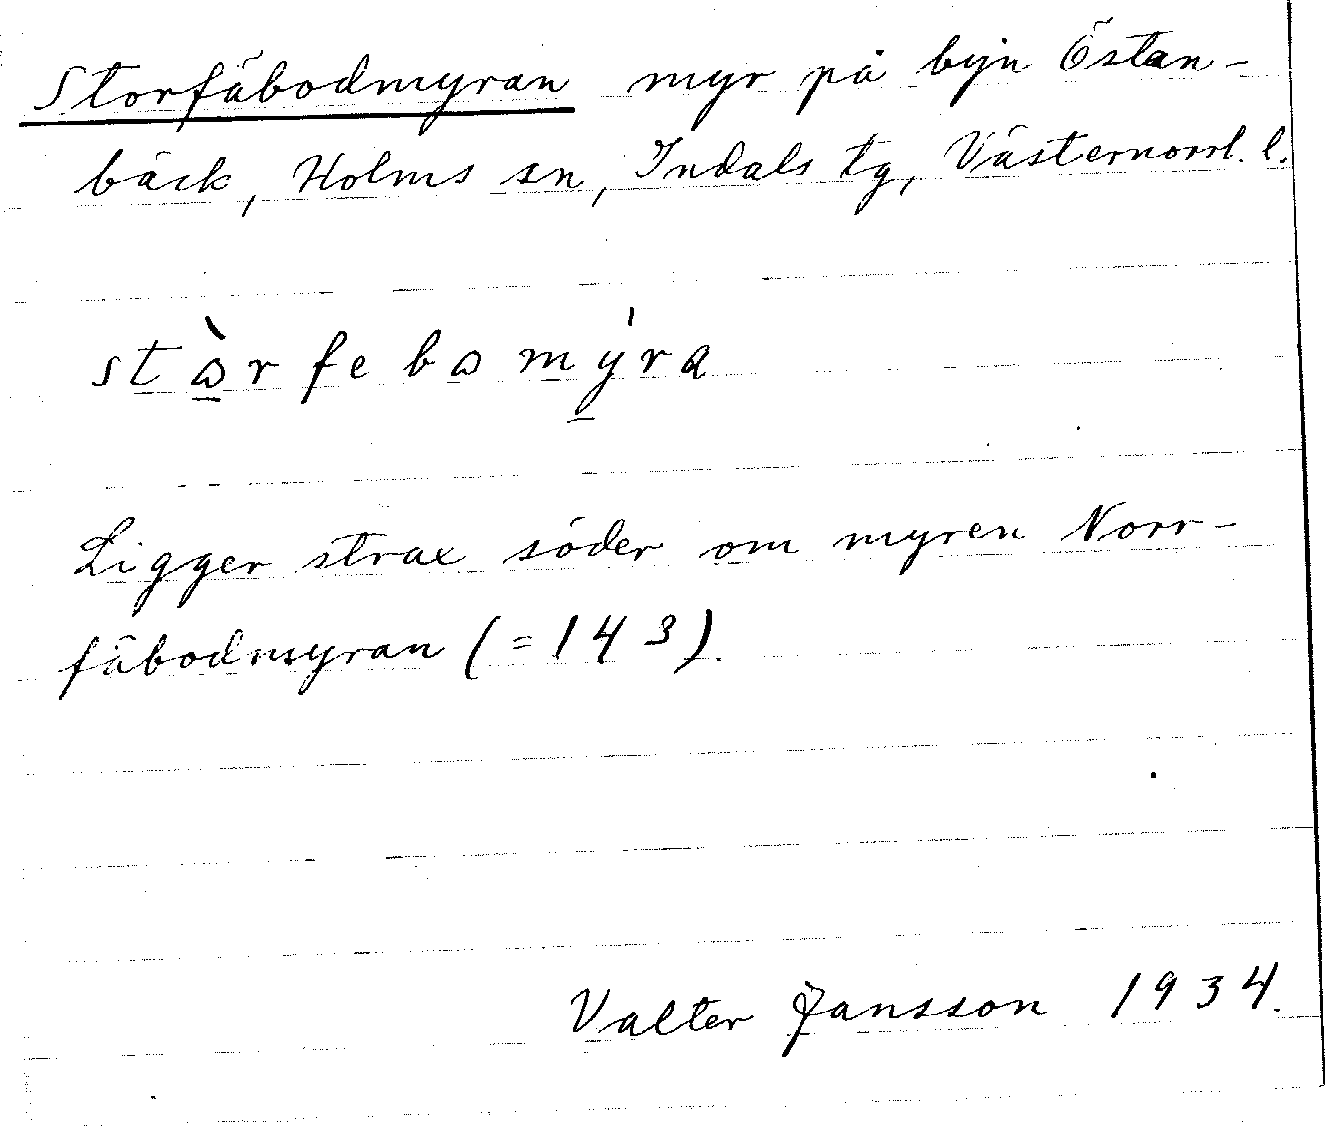 Storfäbodmyran myr på byn Östan-
bäck, Holms sn, Indals tg, Västernorrl. l.
stɷ̀rfebɷmýra
Ligger strax söder om myren Norr-
fäbodmyran (=143).
Valter Jansson 1934.